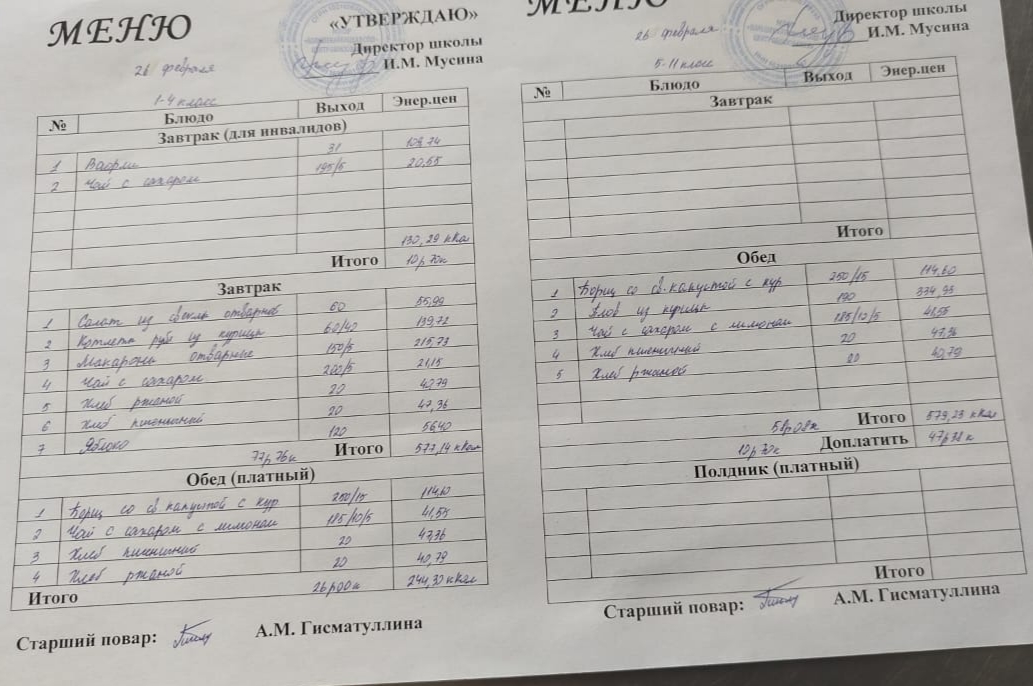 МЕНЮ
«УТВЕРЖДАЮ»
Директор школы
И.М. Мусина
26 февраля
1-4 класс
№ Блюдо Выход Энер.цен
Завтрак (для инвалидов)
1 Вафли 31 109.74
2 Чай с сахаром 195/5 20,55
130,29 кКал
Итого 10р 70к
Завтрак
1 Салат из свеклы отварной 60 55,99
2 Котлета руб из курицы 60/40 139,72
3 Макароны отварные 150/5 215,73
4 Чай с сахаром 200/5 21,15
5 Хлеб ржаной 20 40,79
6 Хлеб пшеничный 20 47,36
7 Яблоко 120 56,40
77р 76к Итого 577,14 кКал
Обед (платный)
1 Борщ со св капустой с кур 250/15 114,60
2 Чай с сахаром с лимоном 185/10/5 41,55
3 Хлеб пшеничный 20 47,36
4 Хлеб ржаной 20 40,79
Итого 26р00к 244,30 кКал
Старший повар: А.М. Гисматуллина
МЕНЮ
Директор школы
И.М. Мусина
26 февраля
5-11 класс
№ Блюдо Выход Энер.цен
Завтрак
Итого
Обед
1 Борщ со св. капустой с кур 250/15 114,60
2 Плов из курицы 190 334,93
3 Чай с сахаром с лимоном 185/10/5 41,55
4 Хлеб пшеничный 20 47,36
5 Хлеб ржаной 20 40,79
58р08к Итого 579,23 кКал
10р 70к Доплатить 47р38к
Полдник (платный)
Итого
Старший повар: А.М. Гисматуллина